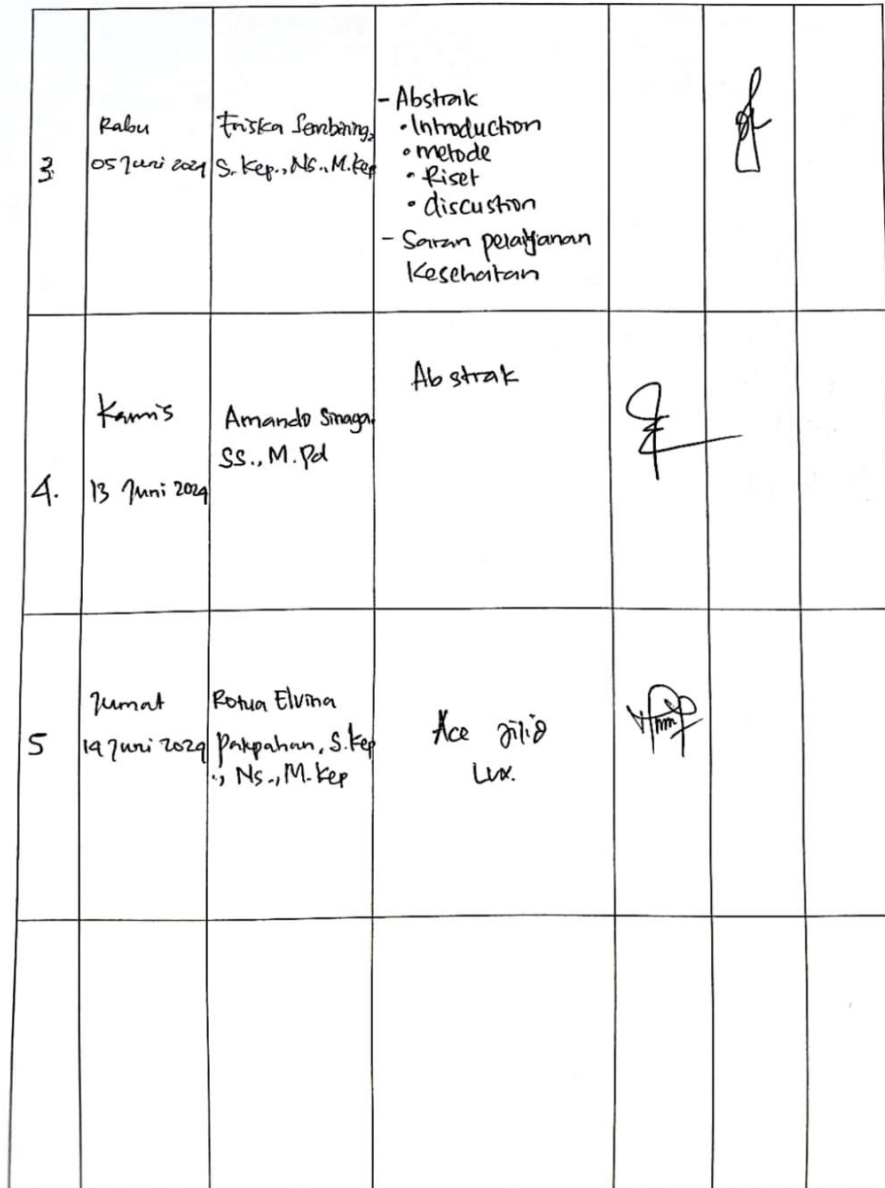 3.
Rabu
05 Juni 2024
Friska Sembiring,
S. Kep., Ns., M.Kep
- Abstrak
• Introduction
• metode
• Riset
• discustion
- Saran pelayanan
Kesehatan
4.
Kamis
13 Juni 2024
Amando Sinaga
SS., M.Pd
Abstrak
5
Jumat
14 Juni 2024
Rotua Elvina
Pakpahan, S.Kep
., Ns., M.Kep
Ace Jilid
Lux.